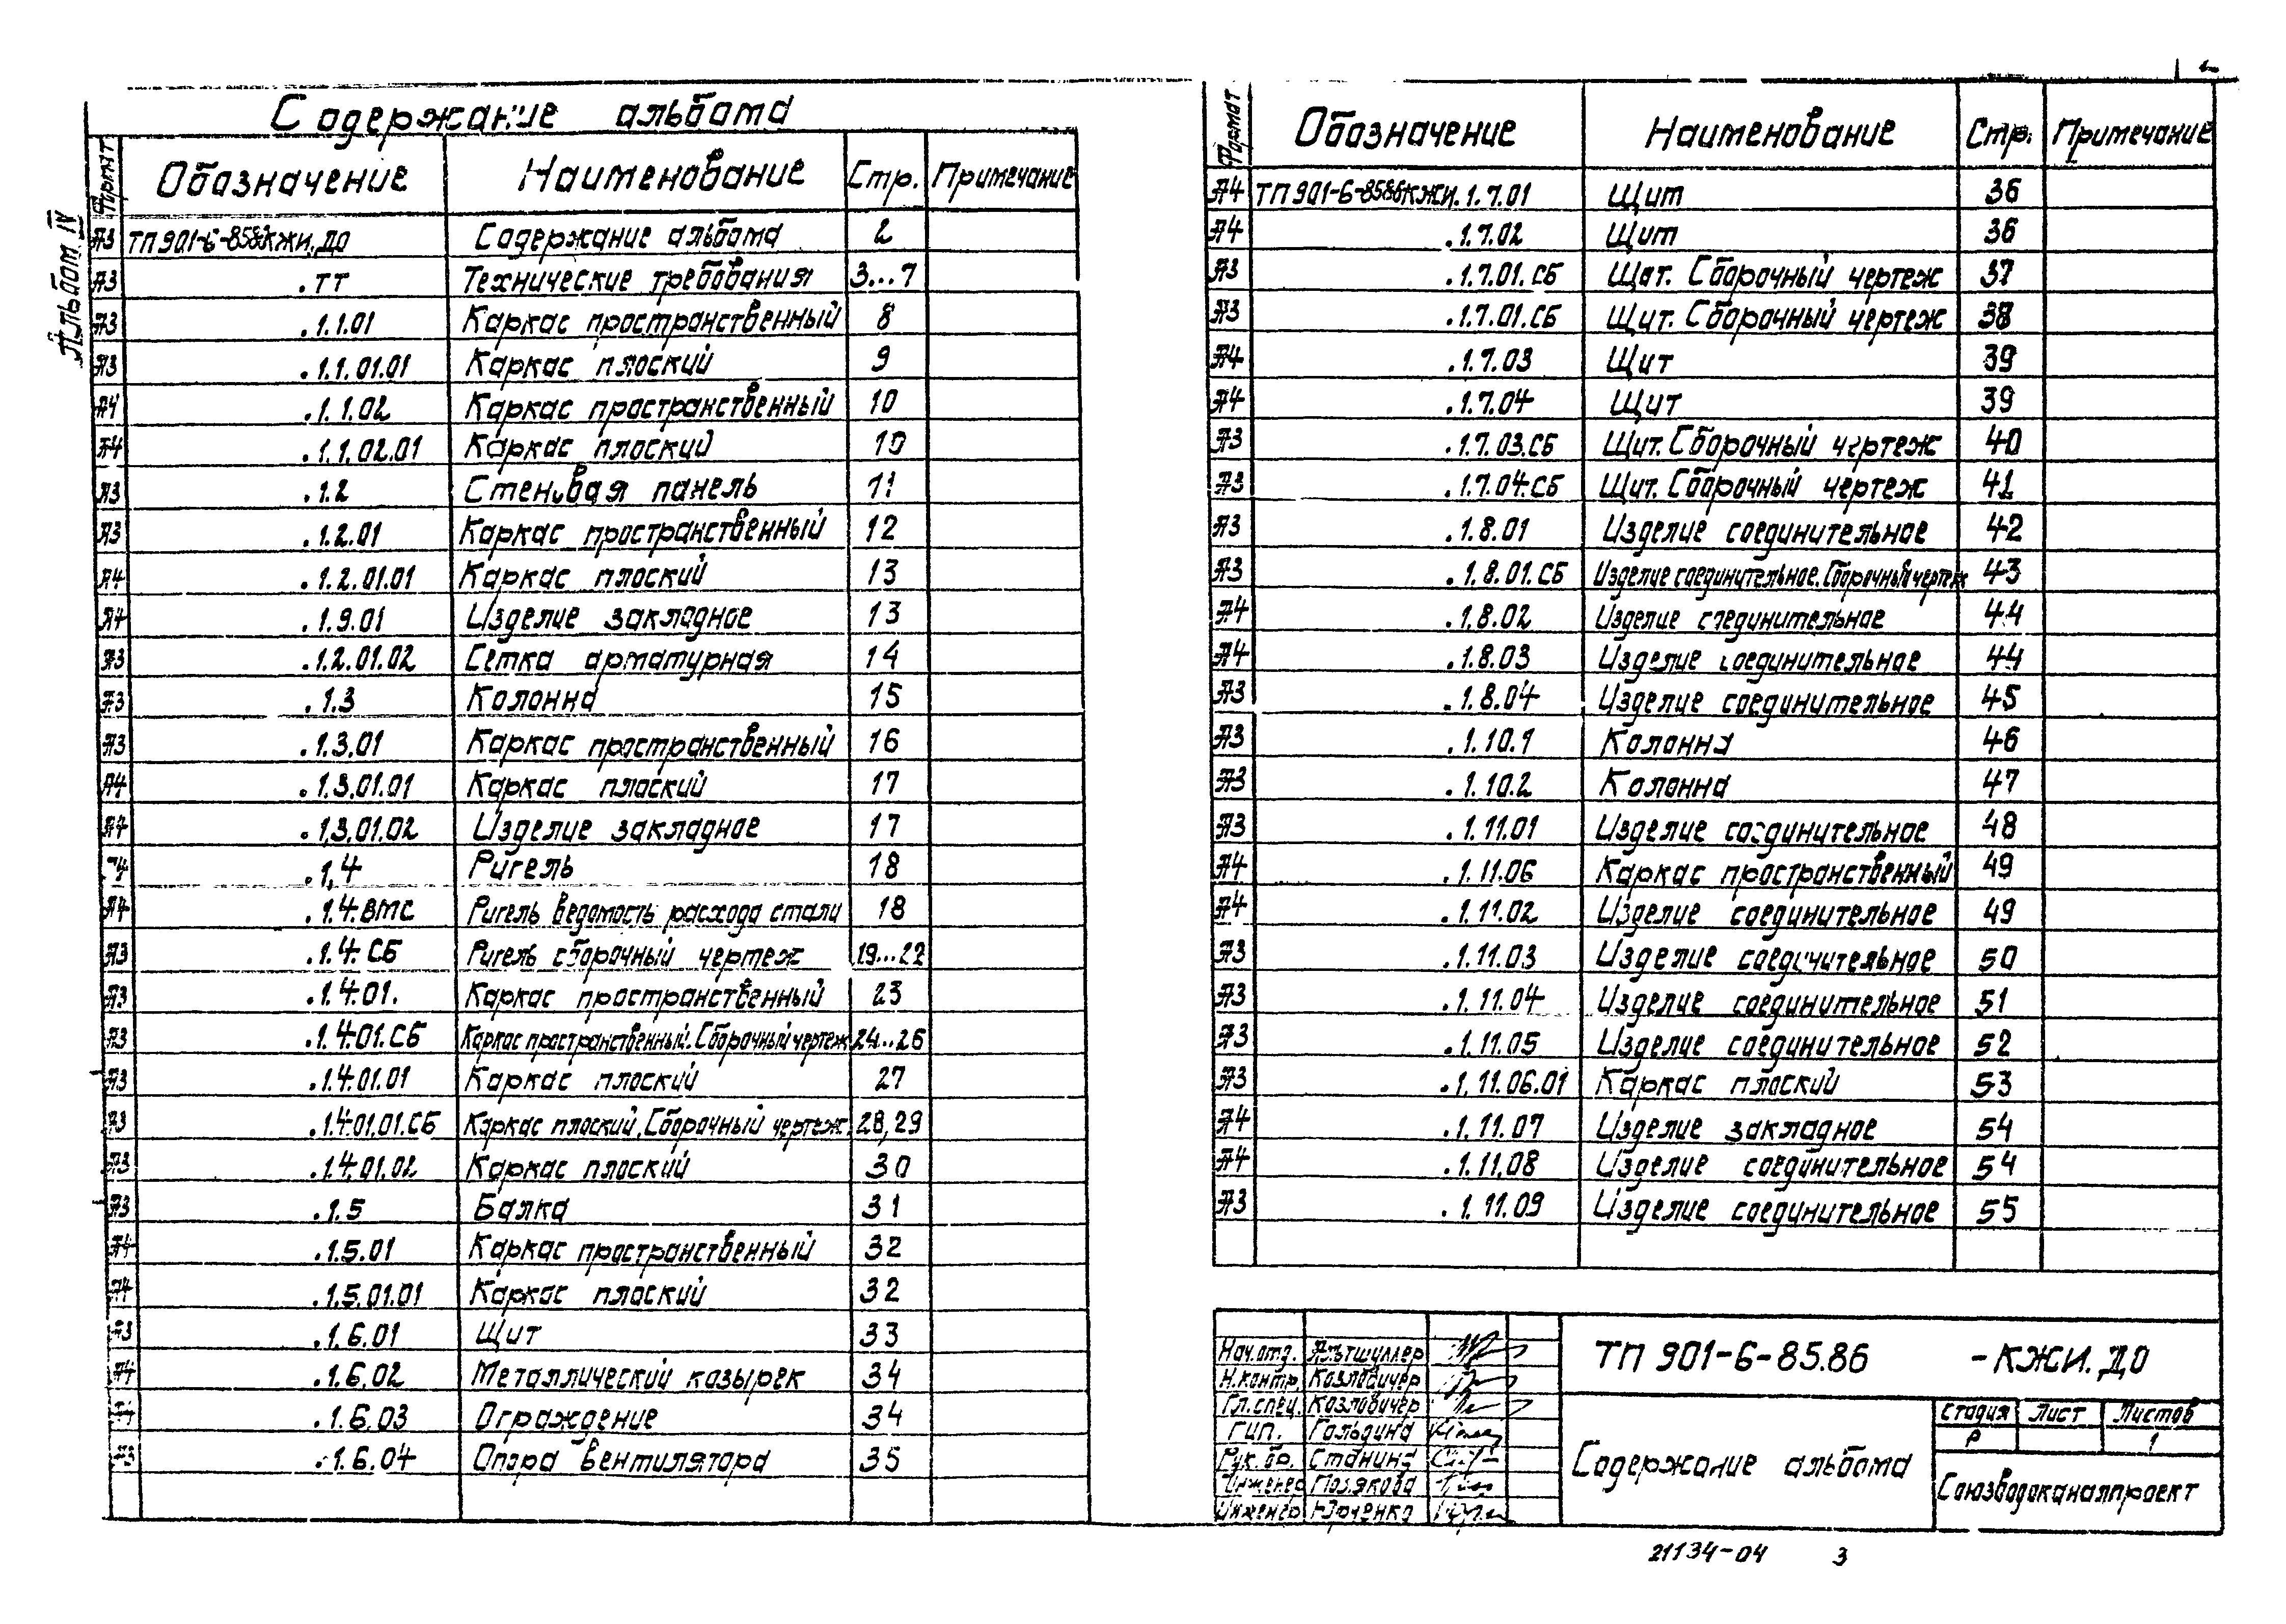 Альбом IV
Содержание альбома
Формат Обозначение Наименование Стр. Примечание
А3 ТП 901-6-85.86 КЖИ.ДО Содержание альбома 2
А3 .ТТ Технические требования 3...7
А3 .1.1.01 Каркас пространственный 8
А3 .1.1.01.01 Каркас плоский 9
А4 .1.1.02 Каркас пространственный 10
А4 .1.1.02.01 Каркас плоский 10
А3 .1.2 Стеновая панель 11
А3 .1.2.01 Каркас пространственный 12
А4 .1.2.01.01 Каркас плоский 13
А4 .1.9.01 Изделие закладное 13
А3 .1.2.01.02 Сетка арматурная 14
А3 .1.3 Колонна 15
А3 .1.3.01 Каркас пространственный 16
А4 .1.3.01.01 Каркас плоский 17
А4 .1.3.01.02 Изделие закладное 17
А4 .1.4 Ригель 18
А4 .1.4.ВМС Ригель ведомость расхода стали 18
А3 .1.4.СБ Ригель сборочный чертеж 19...22
А3 .1.4.01. Каркас пространственный 23
А3 .1.4.01.СБ Каркас пространственный. Сборочный чертеж 24...26
А3 .1.4.01.01 Каркас плоский 27
А3 .1.4.01.01.СБ Каркас плоский. Сборочный чертеж. 28, 29
А3 .1.4.01.02 Каркас плоский 30
А3 .1.5 Балка 31
А4 .1.5.01 Каркас пространственный 32
А4 .1.5.01.01 Каркас плоский 32
А3 .1.6.01 Щит 33
А4 .1.6.02 Металлический козырек 34
А4 .1.6.03 Ограждение 34
А3 .1.6.04 Опора вентилятора 35
Формат Обозначение Наименование Стр. Примечание
А4 ТП 901-6-85.86 КЖИ.1.7.01 Щит 36
А4 .1.7.02 Щит 36
А3 .1.7.01.СБ Щит. Сборочный чертеж 37
А3 .1.7.01.СБ Щит. Сборочный чертеж 38
А4 .1.7.03 Щит 39
А4 .1.7.04 Щит 39
А3 .1.7.03.СБ Щит. Сборочный чертеж 40
А3 .1.7.04.СБ Щит. Сборочный чертеж 41
А3 .1.8.01 Изделие соединительное 42
А3 .1.8.01.СБ Изделие соединительное. Сборочный чертеж 43
А4 .1.8.02 Изделие соединительное 44
А4 .1.8.03 Изделие соединительное 44
А3 .1.8.04 Изделие соединительное 45
А3 .1.10.1 Колонна 46
А3 .1.10.2 Колонна 47
А3 .1.11.01 Изделие соединительное 48
А4 .1.11.06 Каркас пространственный 49
А4 .1.11.02 Изделие соединительное 49
А3 .1.11.03 Изделие соединительное 50
А3 .1.11.04 Изделие соединительное 51
А3 .1.11.05 Изделие соединительное 52
А3 .1.11.06.01 Каркас плоский 53
А4 .1.11.07 Изделие закладное 54
А4 .1.11.08 Изделие соединительное 54
А3 .1.11.09 Изделие соединительное 55
Нач.отд. Альтшуллер
Н.контр. Козловичер
Гл.спец. Козловичер
ГИП. Гольдина
Рук.бр. Станина
Инженер Полякова
Инженер Юрченко
ТП 901-6-85.86 -КЖИ.ДО
Содержание альбома
Стадия Лист Листов
Р 1
Союзводоканалпроект
21134-04 3